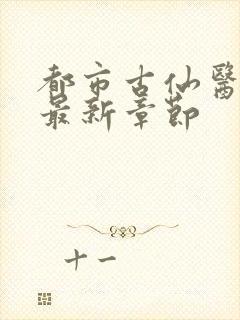 都市古仙醫
最新章節
十一